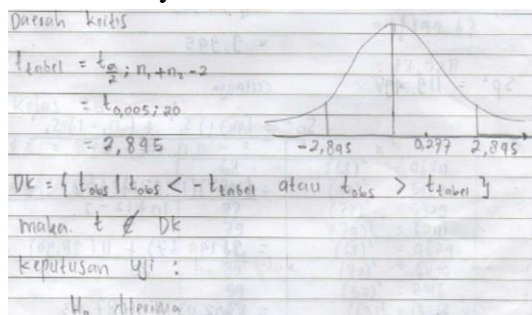 Daerah kritis
t tabel = t α/2 ; n₁ + n₂ - 2
= t 0,005 ; 20
= 2,845
-2,845 0,297 2,845
DK = { t obs | t obs < - t tabel atau t obs > t tabel }
maka. t ∉ DK
keputusan uji :
H₀ diterima